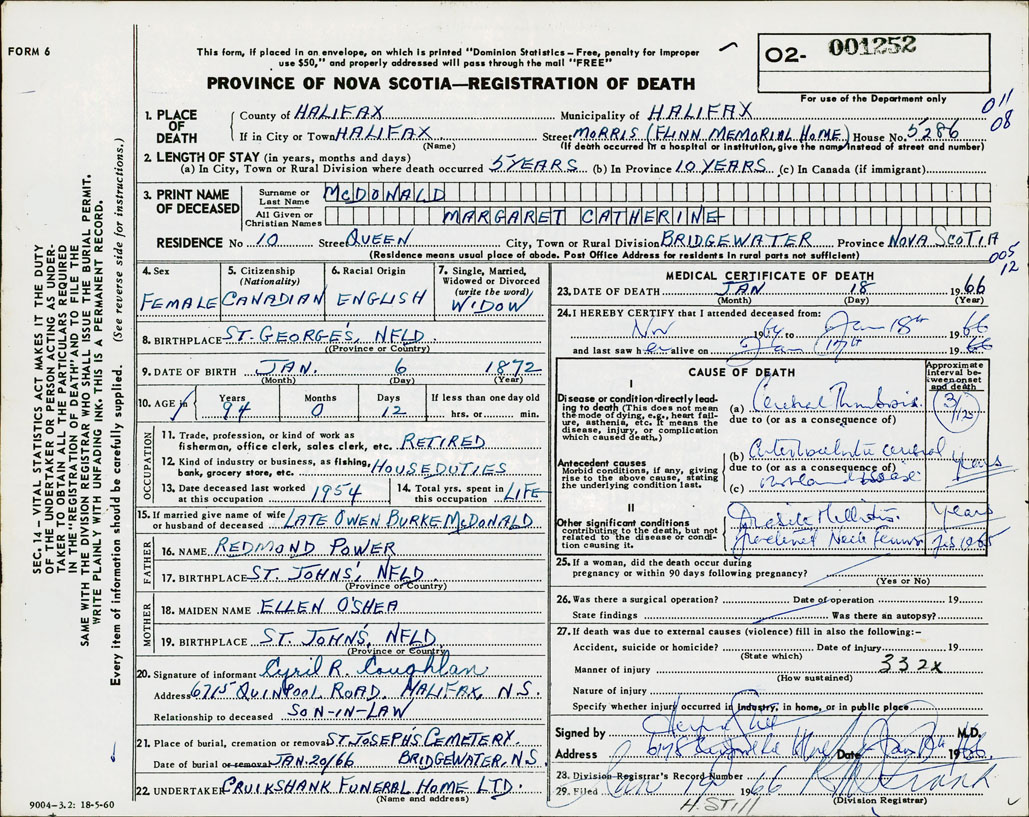 FORM 6
This form, if placed in an envelope, on which is printed "Dominion Statistics—Free, penalty for improper
use $50," and properly addressed will pass through the mail "FREE"
O2- 001252
For use of the Department only
PROVINCE OF NOVA SCOTIA—REGISTRATION OF DEATH
SEC. 14 – VITAL STATISTICS ACT MAKES IT THE DUTY
OF THE UNDERTAKER OR PERSON ACTING AS UNDER-
TAKER TO OBTAIN ALL THE PARTICULARS REQUIRED
IN THE "REGISTRATION OF DEATH" AND TO FILE THE
SAME WITH THE DIVISION REGISTRAR WHO SHALL ISSUE THE BURIAL PERMIT.
WRITE PLAINLY WITH UNFADING INK. THIS IS A PERMANENT RECORD.
Every item of information should be carefully supplied. (See reverse side for instructions.)
1. PLACE OF DEATH
County of HALIFAX Municipality of HALIFAX 011
08
If in City or Town HALIFAX Street MORRIS (FLINN MEMORIAL HOME) House No. 5286
(Name) (If death occurred in a hospital or institution, give the name instead of street and number)
2. LENGTH OF STAY (in years, months and days)
(a) In City, Town or Rural Division where death occurred 5 YEARS (b) In Province 10 YEARS (c) In Canada (if immigrant)
3. PRINT NAME OF DECEASED
Surname or Last Name MCDONALD
All Given or Christian Names MARGARET CATHERINE
RESIDENCE No 10 Street QUEEN City, Town or Rural Division BRIDGEWATER Province NOVA SCOTIA
(Residence means usual place of abode. Post Office Address for residents in rural parts not sufficient)
005
12
4. Sex
FEMALE
5. Citizenship
(Nationality)
CANADIAN
6. Racial Origin
ENGLISH
7. Single, Married,
Widowed or Divorced
(write the word)
WIDOW
8. BIRTHPLACE ST. GEORGE'S, NFLD
(Province or Country)
9. DATE OF BIRTH JAN. 6 1872
(Month) (Day) (Year)
10. AGE Years Months Days If less than one day old
94 0 12 hrs. or min.
OCCUPATION
11. Trade, profession, or kind of work as
fisherman, office clerk, sales clerk, etc. RETIRED
12. Kind of industry or business, as fishing,
bank, grocery store, etc. HOUSE DUTIES
13. Date deceased last worked
at this occupation 1954
14. Total yrs. spent in
this occupation LIFE
15. If married give name of wife
or husband of deceased LATE OWEN BURKE MCDONALD
FATHER
16. NAME REDMOND POWER
17. BIRTHPLACE ST. JOHNS', NFLD
(Province or Country)
MOTHER
18. MAIDEN NAME ELLEN O'SHEA
19. BIRTHPLACE ST. JOHN'S, NFLD
(Province or Country)
20.
Signature of informant Cyril R. Coughlan
Address 6715 QUINPOOL ROAD, HALIFAX, N.S.
Relationship to deceased SON-IN-LAW
21. Place of burial, cremation or removal ST. JOSEPHS CEMETERY.
Date of burial or removal JAN. 20/66 BRIDGEWATER, N.S.
22. UNDERTAKER CRUIKSHANK FUNERAL HOME LTD.
(Name and address)
9004–3.2: 18-5-60
MEDICAL CERTIFICATE OF DEATH
23. DATE OF DEATH JAN 18 1966
(Month) (Day) (Year)
24. I HEREBY CERTIFY that I attended deceased from:
Nov 1964 to Jan 18th 1966
and last saw her alive on Jan 17th 1966
CAUSE OF DEATH
Approximate
interval be-
tween onset
and death
I
Disease or condition directly lead-
ing to death (This does not mean
the mode of dying, e.g., heart fail-
ure, asthenia, etc. It means the
disease, injury, or complication
which caused death.)
(a) Cerebral Thrombosis
due to (or as a consequence of)
Antecedent causes
Morbid conditions, if any, giving
rise to the above cause, stating
the underlying condition last.
(b) cerebral years
due to (or as a consequence of)
(c) disease
II
Other significant conditions
contributing to the death, but not
related to the disease or condi-
tion causing it.
Years
Neck Femur Feb 1965
25. If a woman, did the death occur during
pregnancy or within 90 days following pregnancy?
(Yes or No)
26. Was there a surgical operation? Date of operation 19
State findings Was there an autopsy?
27. If death was due to external causes (violence) fill in also the following:–
Accident, suicide or homicide? Date of injury 19
(State which)
Manner of injury 332X
(How sustained)
Nature of injury
Specify whether injury occurred in industry, in home, or in public place
Signed by M.D.
Address Date 1966
28. Division Registrar's Record Number
29. Filed Jan 1966
(Division Registrar)
H. STILL